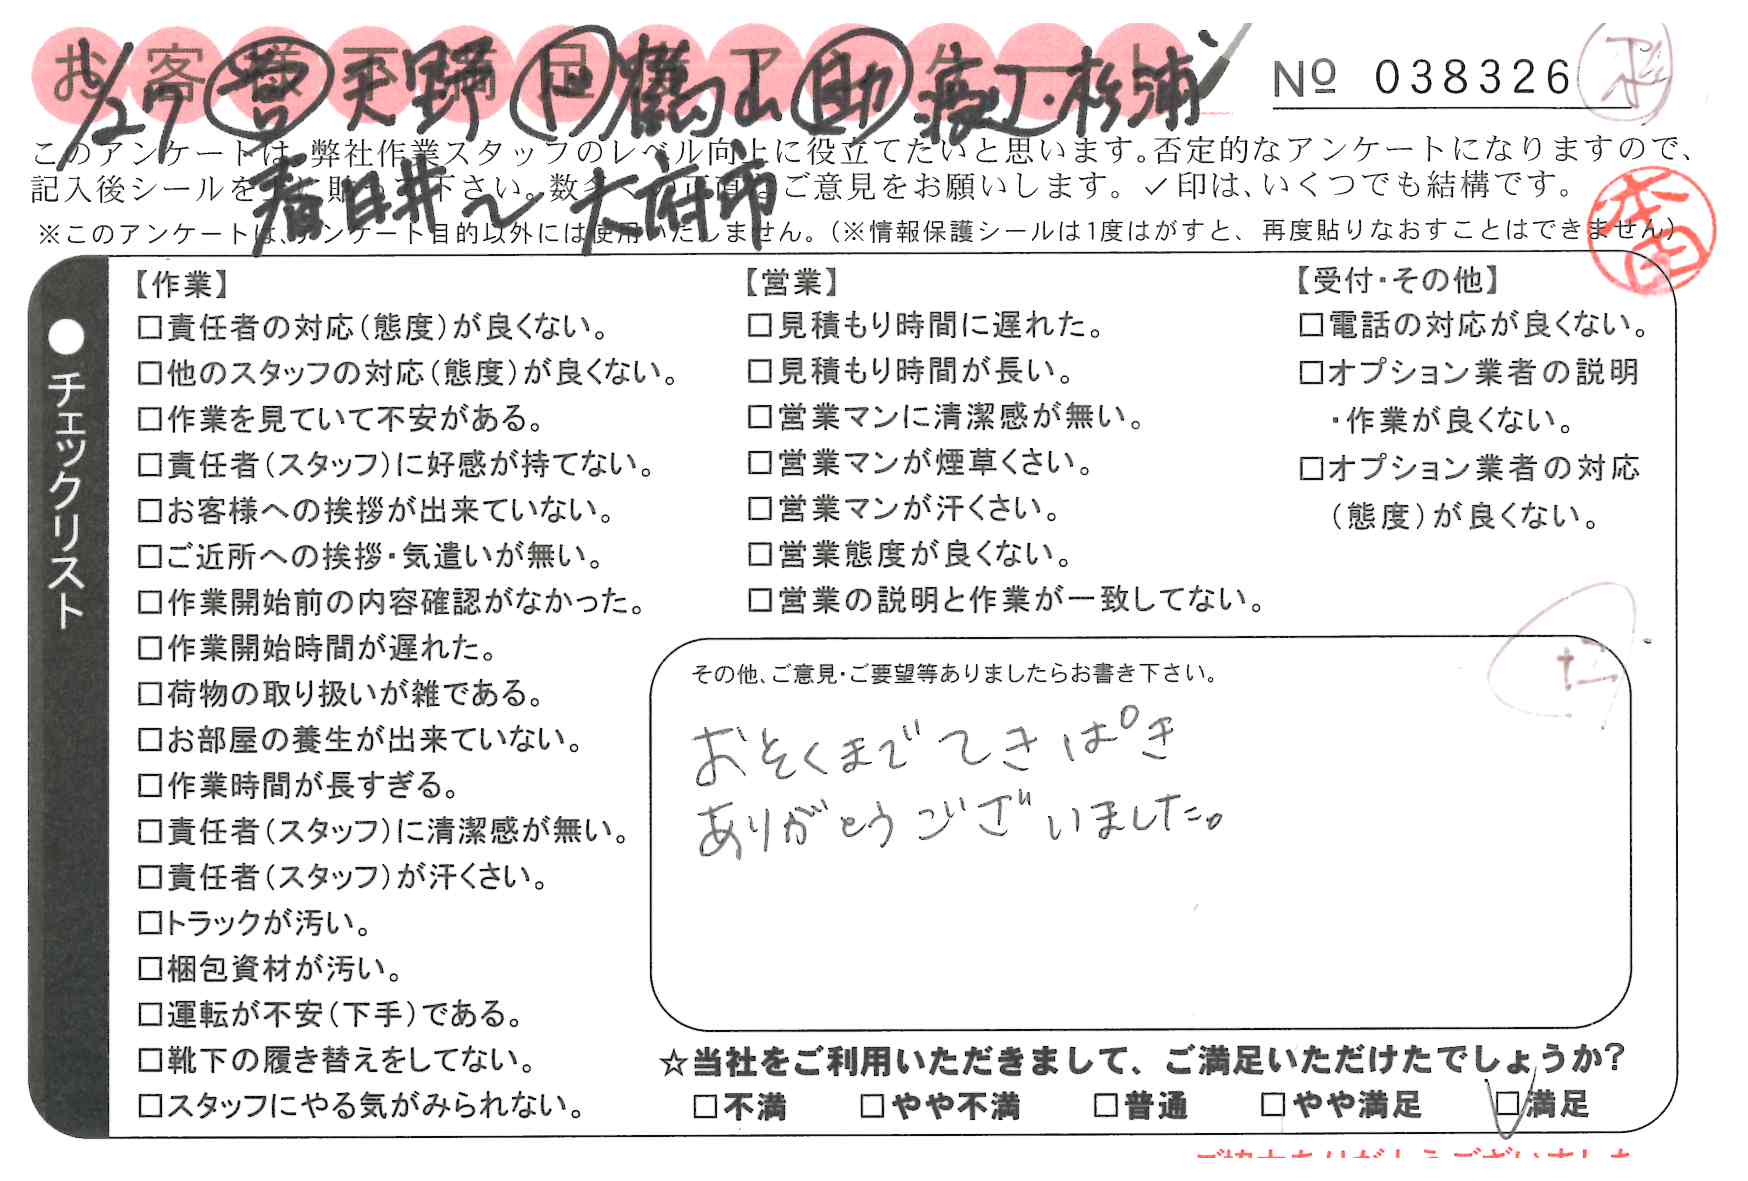 お客様不満足アンケート
1/27 営 天野 ド 鶴山 助 渡辺・杉浦
№ 038326
このアンケートは、弊社作業スタッフのレベル向上に役立てたいと思います。否定的なアンケートになりますので、
春日井〜大府市
※このアンケートは、アンケート目的以外には使用いたしません。(※情報保護シールは1度はがすと、再度貼りなおすことはできません)
本田
●チェックリスト
【作業】
□責任者の対応(態度)が良くない。
□他のスタッフの対応(態度)が良くない。
□作業を見ていて不安がある。
□責任者(スタッフ)に好感が持てない。
□お客様への挨拶が出来ていない。
□ご近所への挨拶・気遣いが無い。
□作業開始前の内容確認がなかった。
□作業開始時間が遅れた。
□荷物の取り扱いが雑である。
□お部屋の養生が出来ていない。
□作業時間が長すぎる。
□責任者(スタッフ)に清潔感が無い。
□責任者(スタッフ)が汗くさい。
□トラックが汚い。
□梱包資材が汚い。
□運転が不安(下手)である。
□靴下の履き替えをしてない。
□スタッフにやる気がみられない。
【営業】
□見積もり時間に遅れた。
□見積もり時間が長い。
□営業マンに清潔感が無い。
□営業マンが煙草くさい。
□営業マンが汗くさい。
□営業態度が良くない。
□営業の説明と作業が一致してない。
【受付・その他】
□電話の対応が良くない。
□オプション業者の説明
・作業が良くない。
□オプション業者の対応
(態度)が良くない。
その他、ご意見・ご要望等ありましたらお書き下さい。
おそくまでてきぱき
ありがとうございました。
☆当社をご利用いただきまして、ご満足いただけたでしょうか?
□不満 □やや不満 □普通 □やや満足 ☑満足